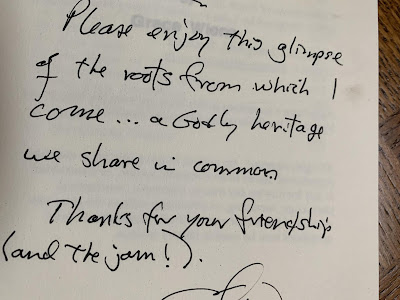 Please enjoy this glimpse
of the roots from which I
come... a Godly heritage
we share in common
Thanks for your friendship
(and the jam!).